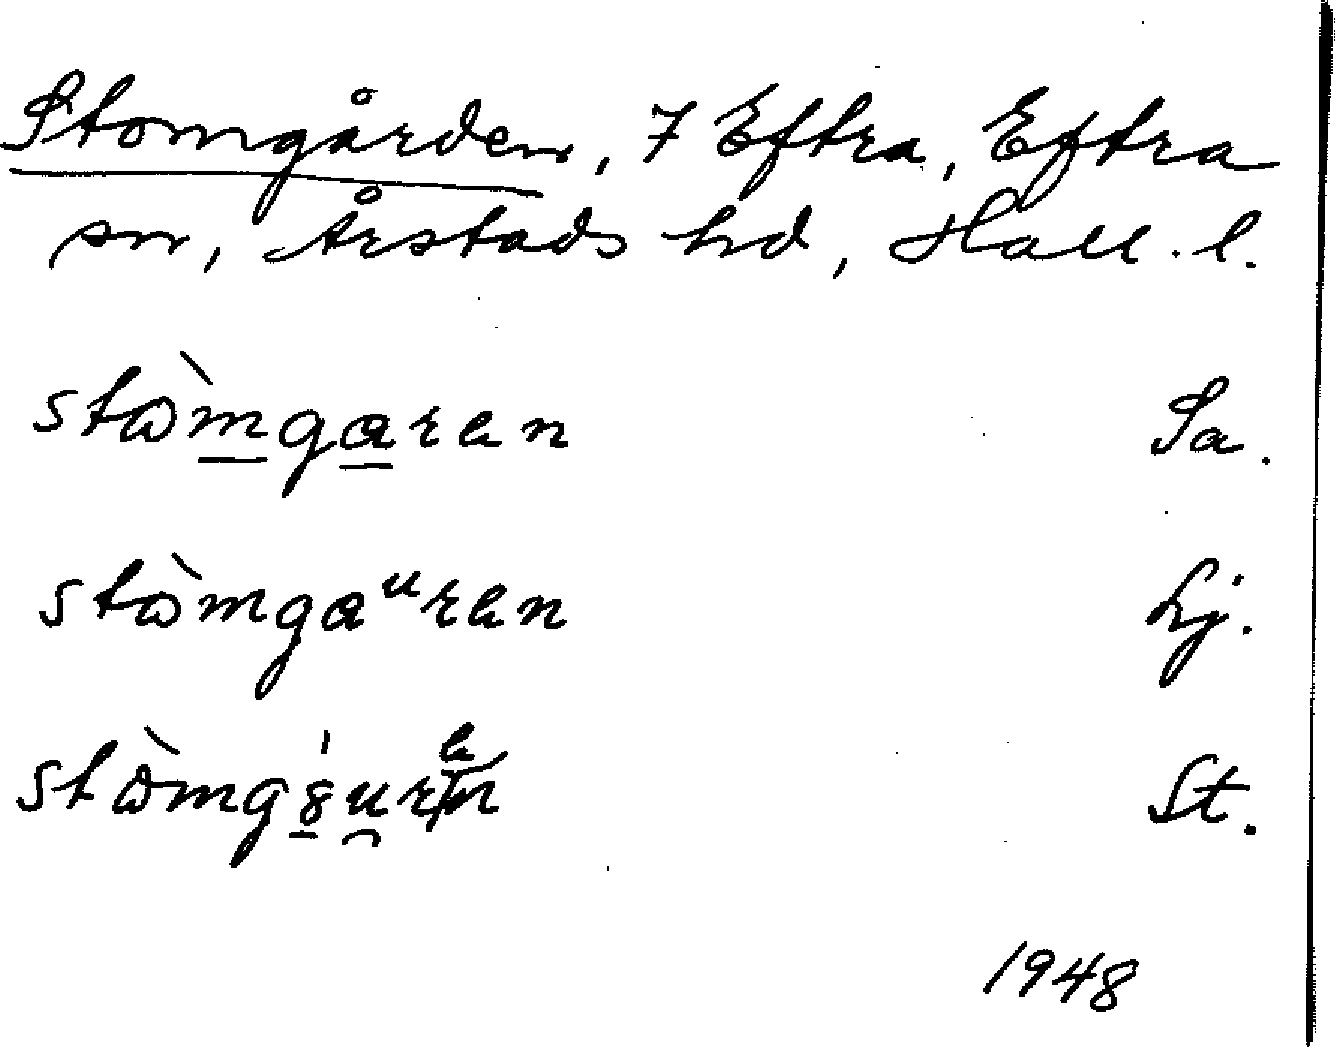 Stomgården, 7 Eftra, Eftra
sn, Årstads hd, Hall. l.
stɷ̀mgaren Sa.
stɷ̀mgaᵘren Lj.
stɷ̀mg8uren St.
1948